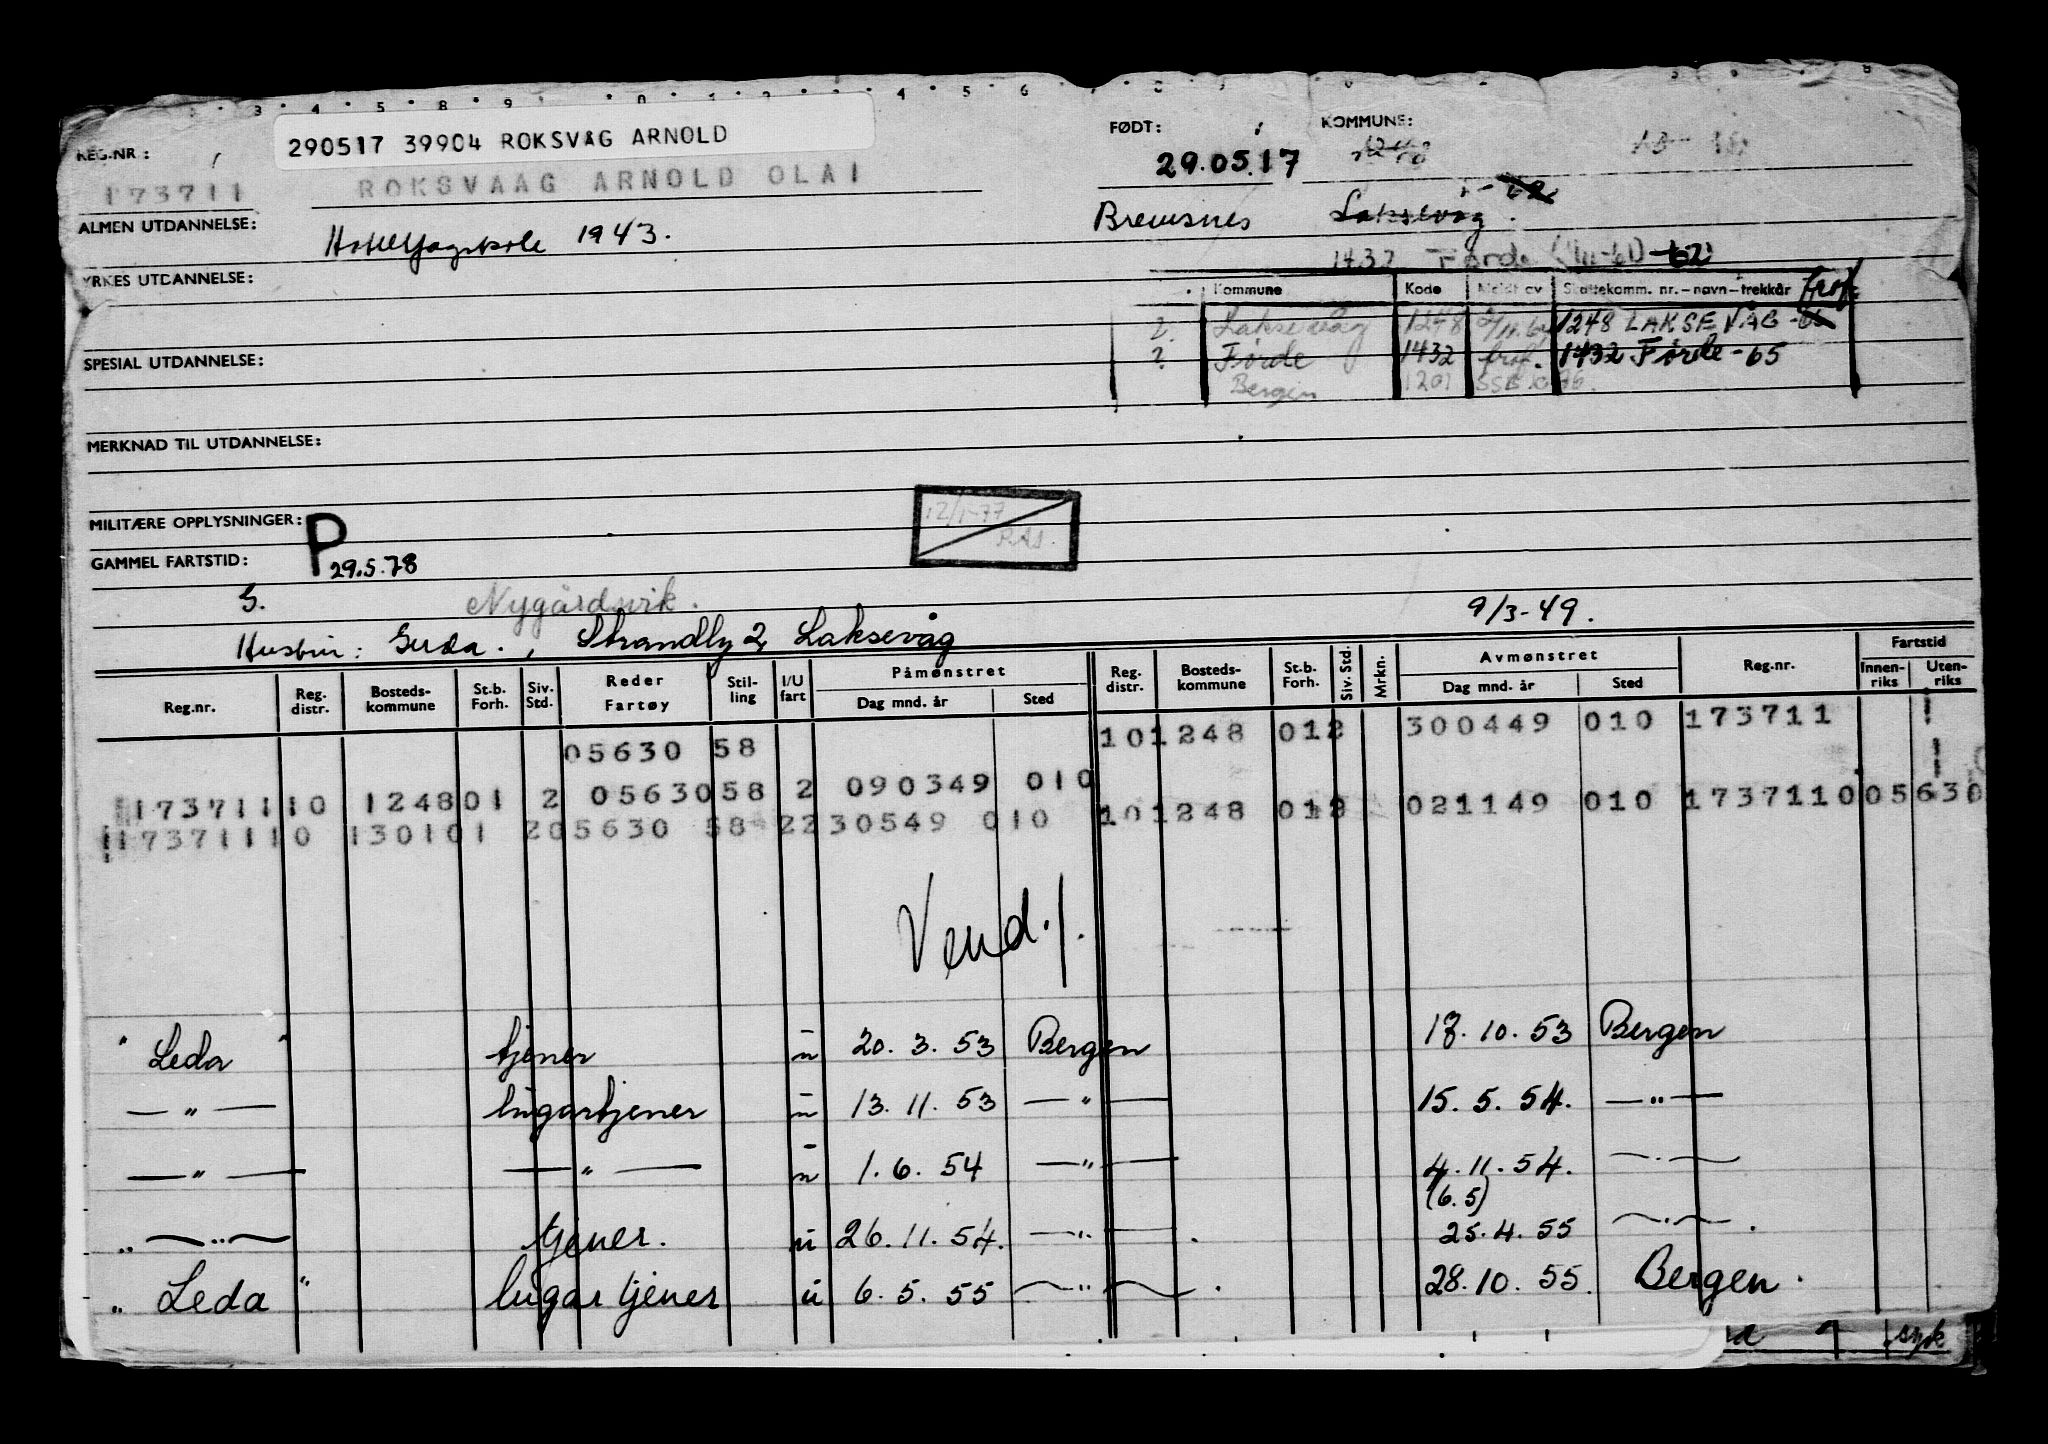 290517 39904 ROKSVAG ARNOLD
REG.NR:
173711
ROKSVAAG ARNOLD OLAI
FØDT:
29.05.17
KOMMUNE:
ALMEN UTDANNELSE:
Hotellfagskole 1943.
Bremsnes
Laksevåg
1432 Førde (1/11-61) -62
YRKES UTDANNELSE:
Kommune Kode Meldt av Skattekomm. nr.-navn-trekkår
? Laksevåg 1248 1248 LAKSEVÅG -65
? Førde 1432 1432 Førde -65
Bergen 1201
SPESIAL UTDANNELSE:
MERKNAD TIL UTDANNELSE:
MILITÆRE OPPLYSNINGER:
P
29.5.78
12/1-77
GAMMEL FARTSTID:
G.
Nygårdsvik.
9/3-49.
Hustru: Gerda., Strandly 2, Laksevåg
Reg.nr. Reg. distr. Bosteds-kommune St.b. Forh. Siv. Std. Reder Fartøy Stil-ling I/U fart Påmønstret Dag mnd. år Sted Reg. distr. Bosteds-kommune St.b. Forh. Siv. Std. Mrkn. Avmønstret Dag mnd. år Sted Reg.nr. Fartstid Innen-riks Uten-riks
05630 58 101248 012 300449 010 173711
173711 10 1248 01 2 05630 58 2 090349 010
101248 012 021149 010 173711 0 05630
173711 10 1301 01 2 05630 58 2 230549 010
Vend./.
" Leda " tjener u 20. 3. 53 Bergen 17. 10. 53 Bergen
— " — lugartjener u 13. 11. 53 — " — 15. 5. 54. — " —
— " — — " — u 1. 6. 54 — " — 4. 11. 54. — " —
(6.5)
" — " — tjener. u 26. 11. 54. — " — . 25. 4. 55 — " — .
" Leda " lugartjener u 6. 5. 55 — " — . 28. 10. 55. Bergen.
syk